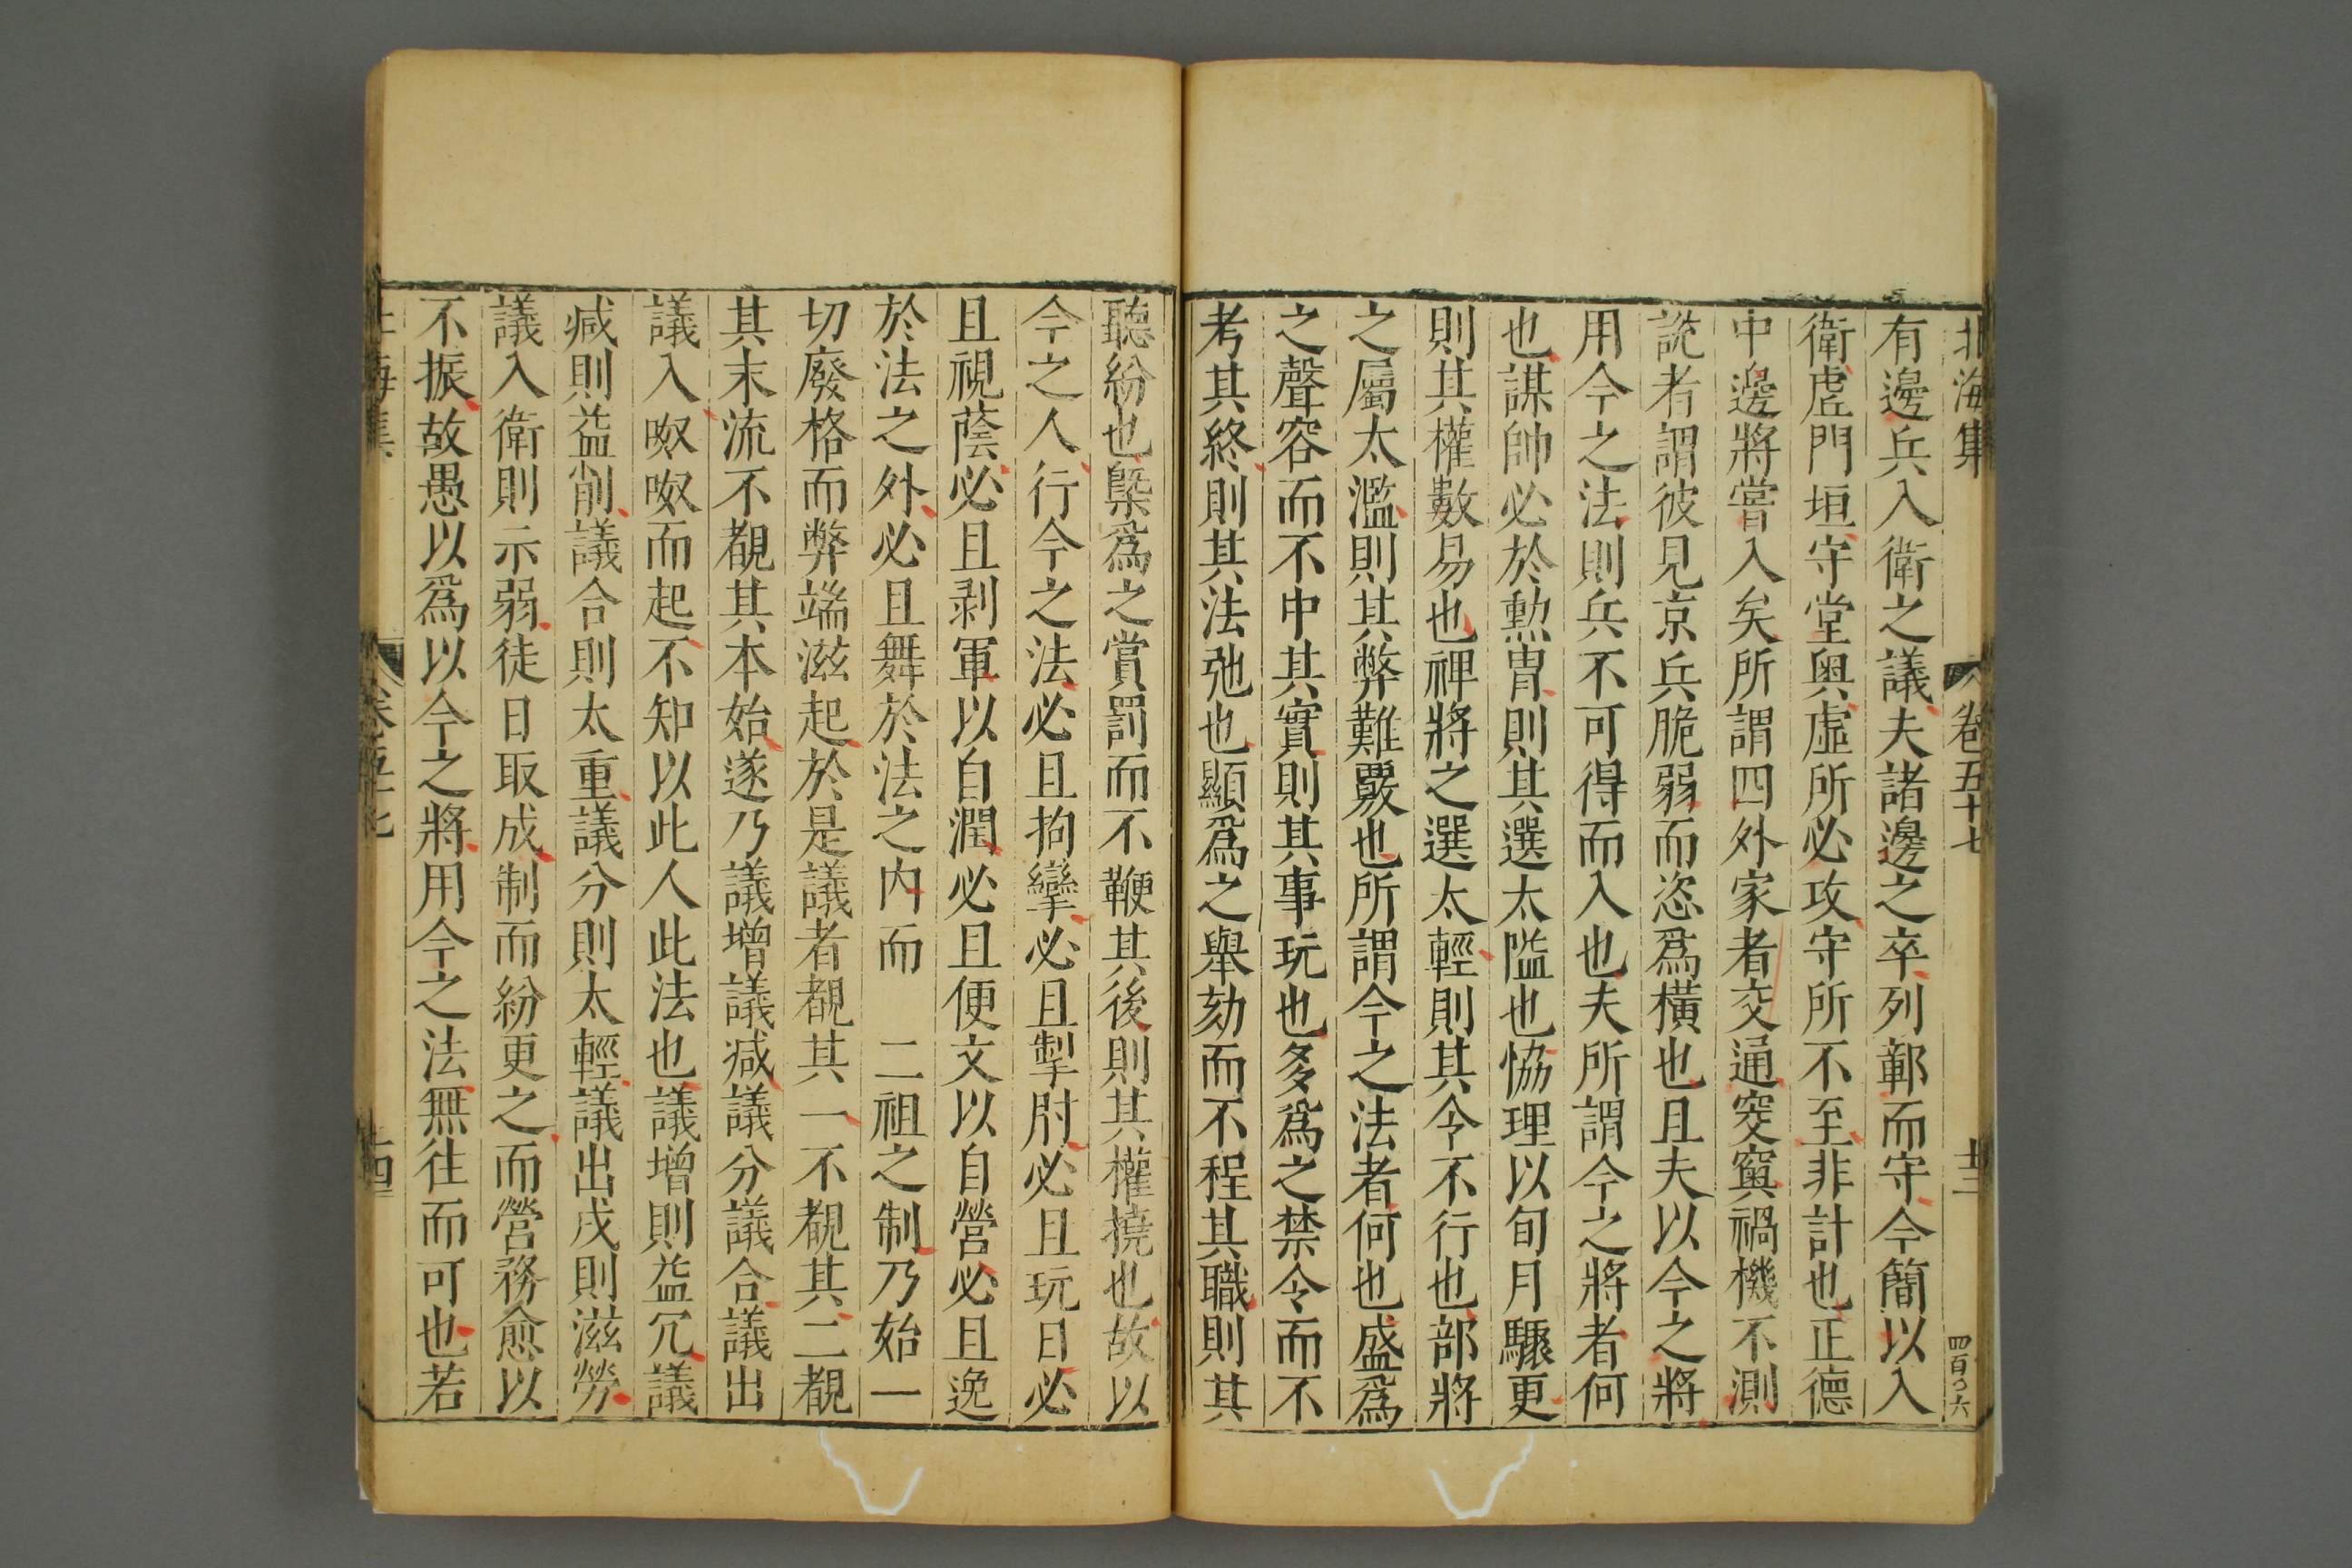 北海集 卷五十七 十三 四百六
有邊兵入衛之議夫諸邊之卒列鄣而守今簡以入
衛虗門垣守堂奧虛所必攻守所不至非計也正德
中邊將嘗入矣所謂四外家者交通窔竇禍機不測
說者謂彼見京兵脆弱而恣爲橫也且夫以今之將
用今之法則兵不可得而入也夫所謂今之將者何
也謀帥必於勲胄則其選太隘也恊理以旬月驟更
則其權數易也禆將之選太輕則其令不行也部將
之屬太濫則其弊難覈也所謂今之法者何也盛爲
之聲容而不中其實則其事玩也多爲之禁令而不
考其終則其法弛也顯爲之舉劾而不程其職則其
聽紛也槩爲之賞罰而不鞭其後則其權撓也故以
今之人行今之法必且拘攣必且掣肘必且玩日必
且視蔭必且剥軍以自潤必且便文以自營必且逸
於法之外必且舞於法之内而 二祖之制乃始一
切廢格而弊端滋起於是議者覩其一不覩其二覩
其末流不覩其本始遂乃議增議减議分議合議出
議入呶呶而起不知以此人此法也議增則益冗議
减則益削議合則太重議分則太輕議出戍則滋勞
議入衛則示弱徒日取成制而紛更之而營務愈以
不振故愚以爲以今之將用今之法無往而可也若
海集 卷五十七 十四